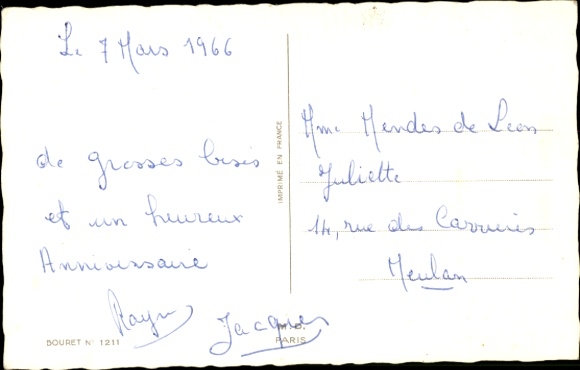 Le 7 Mars 1966
de grosses bises
et un heureux
Anniversaire
Jacques
BOURET N° 1211
M.D.
PARIS
IMPRIMÉ EN FRANCE
Mme Mendes de Leon
Juliette
14, rue des Carrieres
Meulan